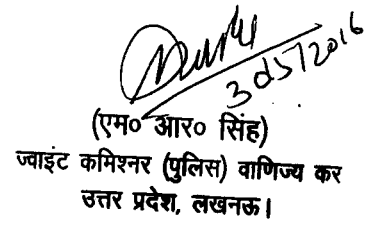 (एम० आर० सिंह)
ज्वाइंट कमिश्नर (पुलिस) वाणिज्य कर
उत्तर प्रदेश, लखनऊ।